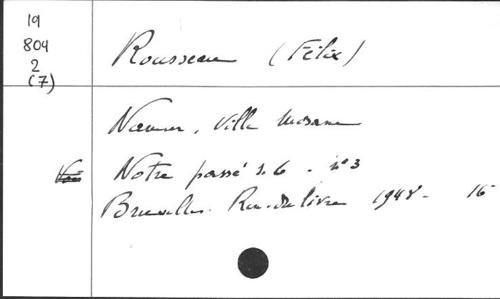 19
804
2
(7)
Rousseau (Félix)
Namur, Ville Mosane
Notre passé s. 6 - n° 3
Bruxelles. Ren. du livre 1948 - 16°